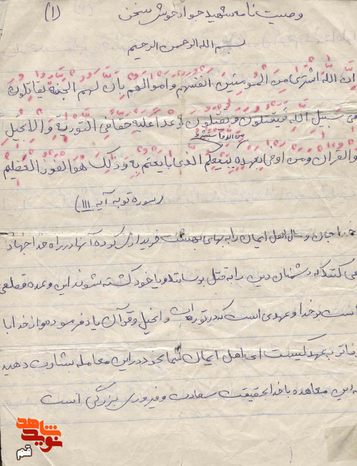 (۱)
وصیت نامه شهید جواد خوش سخن
بسم الله الرحمن الرحیم
اِنَّ اللهَ اشْتَرى مِنَ الْمُؤمِنینَ اَنْفُسَهُمْ وَ اَمْوالَهُمْ بِاَنَّ لَهُمُ الْجَنَّةَ یُقاتِلُونَ
فی سَبیلِ اللهِ فَیَقْتُلُونَ وَ یُقْتَلُونَ وَعْداً عَلَیْهِ حَقّاً فِی التَّوْریةِ وَ الْاِنْجیلِ
وَ الْقُرْآنِ وَ مَنْ اَوْفى بِعَهْدِهِ بِبَیْعِکُمُ الَّذی بایَعْتُمْ بِهِ وَ ذلِکَ هُوَ الْفَوْزُ الْعَظیمُ
(سوره توبه آیه ۱۱۱)
خدا جان و مال اهل ایمان را به بهای بهشت خریداری کرده آنها در راه خدا جهاد
می کنند که دشمنان دین را به قتل برسانند و یا خود کشته شوند این وعده قطعی
است بر خدا و عهدی است که در تورات و انجیل و قرآن یاد فرموده و از خدا با
وفاتر به عهد کیست ای اهل ایمان شما بخود در این معامله بشارت دهید
که این معاهده با خدا حقیقت سعادت و فیروزی بزرگی است
نوید شاهد
قم